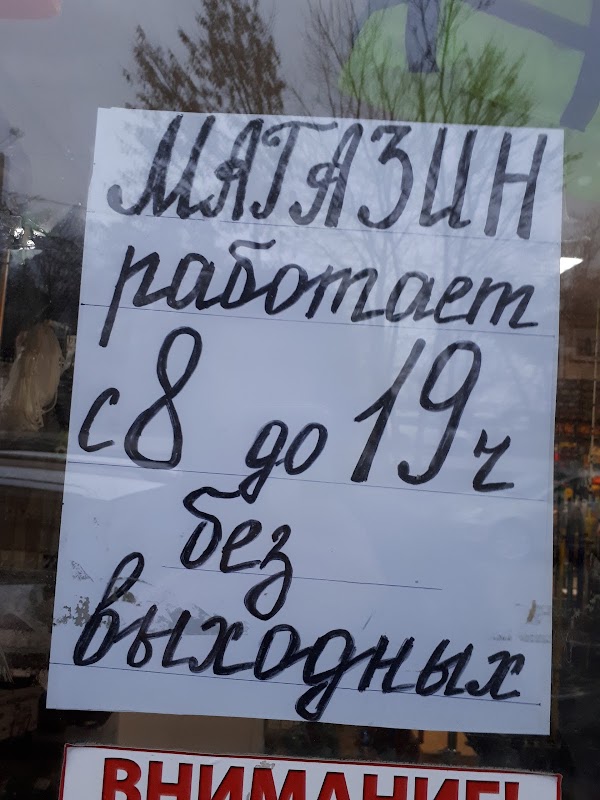 МАГАЗИН
работает
с 8 до 19 ч
без
выходных
ВНИМАНИЕ!